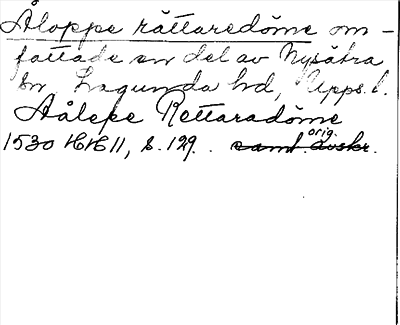 Åloppe rättaredöme om-
fattade en del av Nysätra
sn, Lagunda hd, Upps. l.
Aålepe Rettaradöme
1530 HH 11, s. 129. samt. avskr. orig.